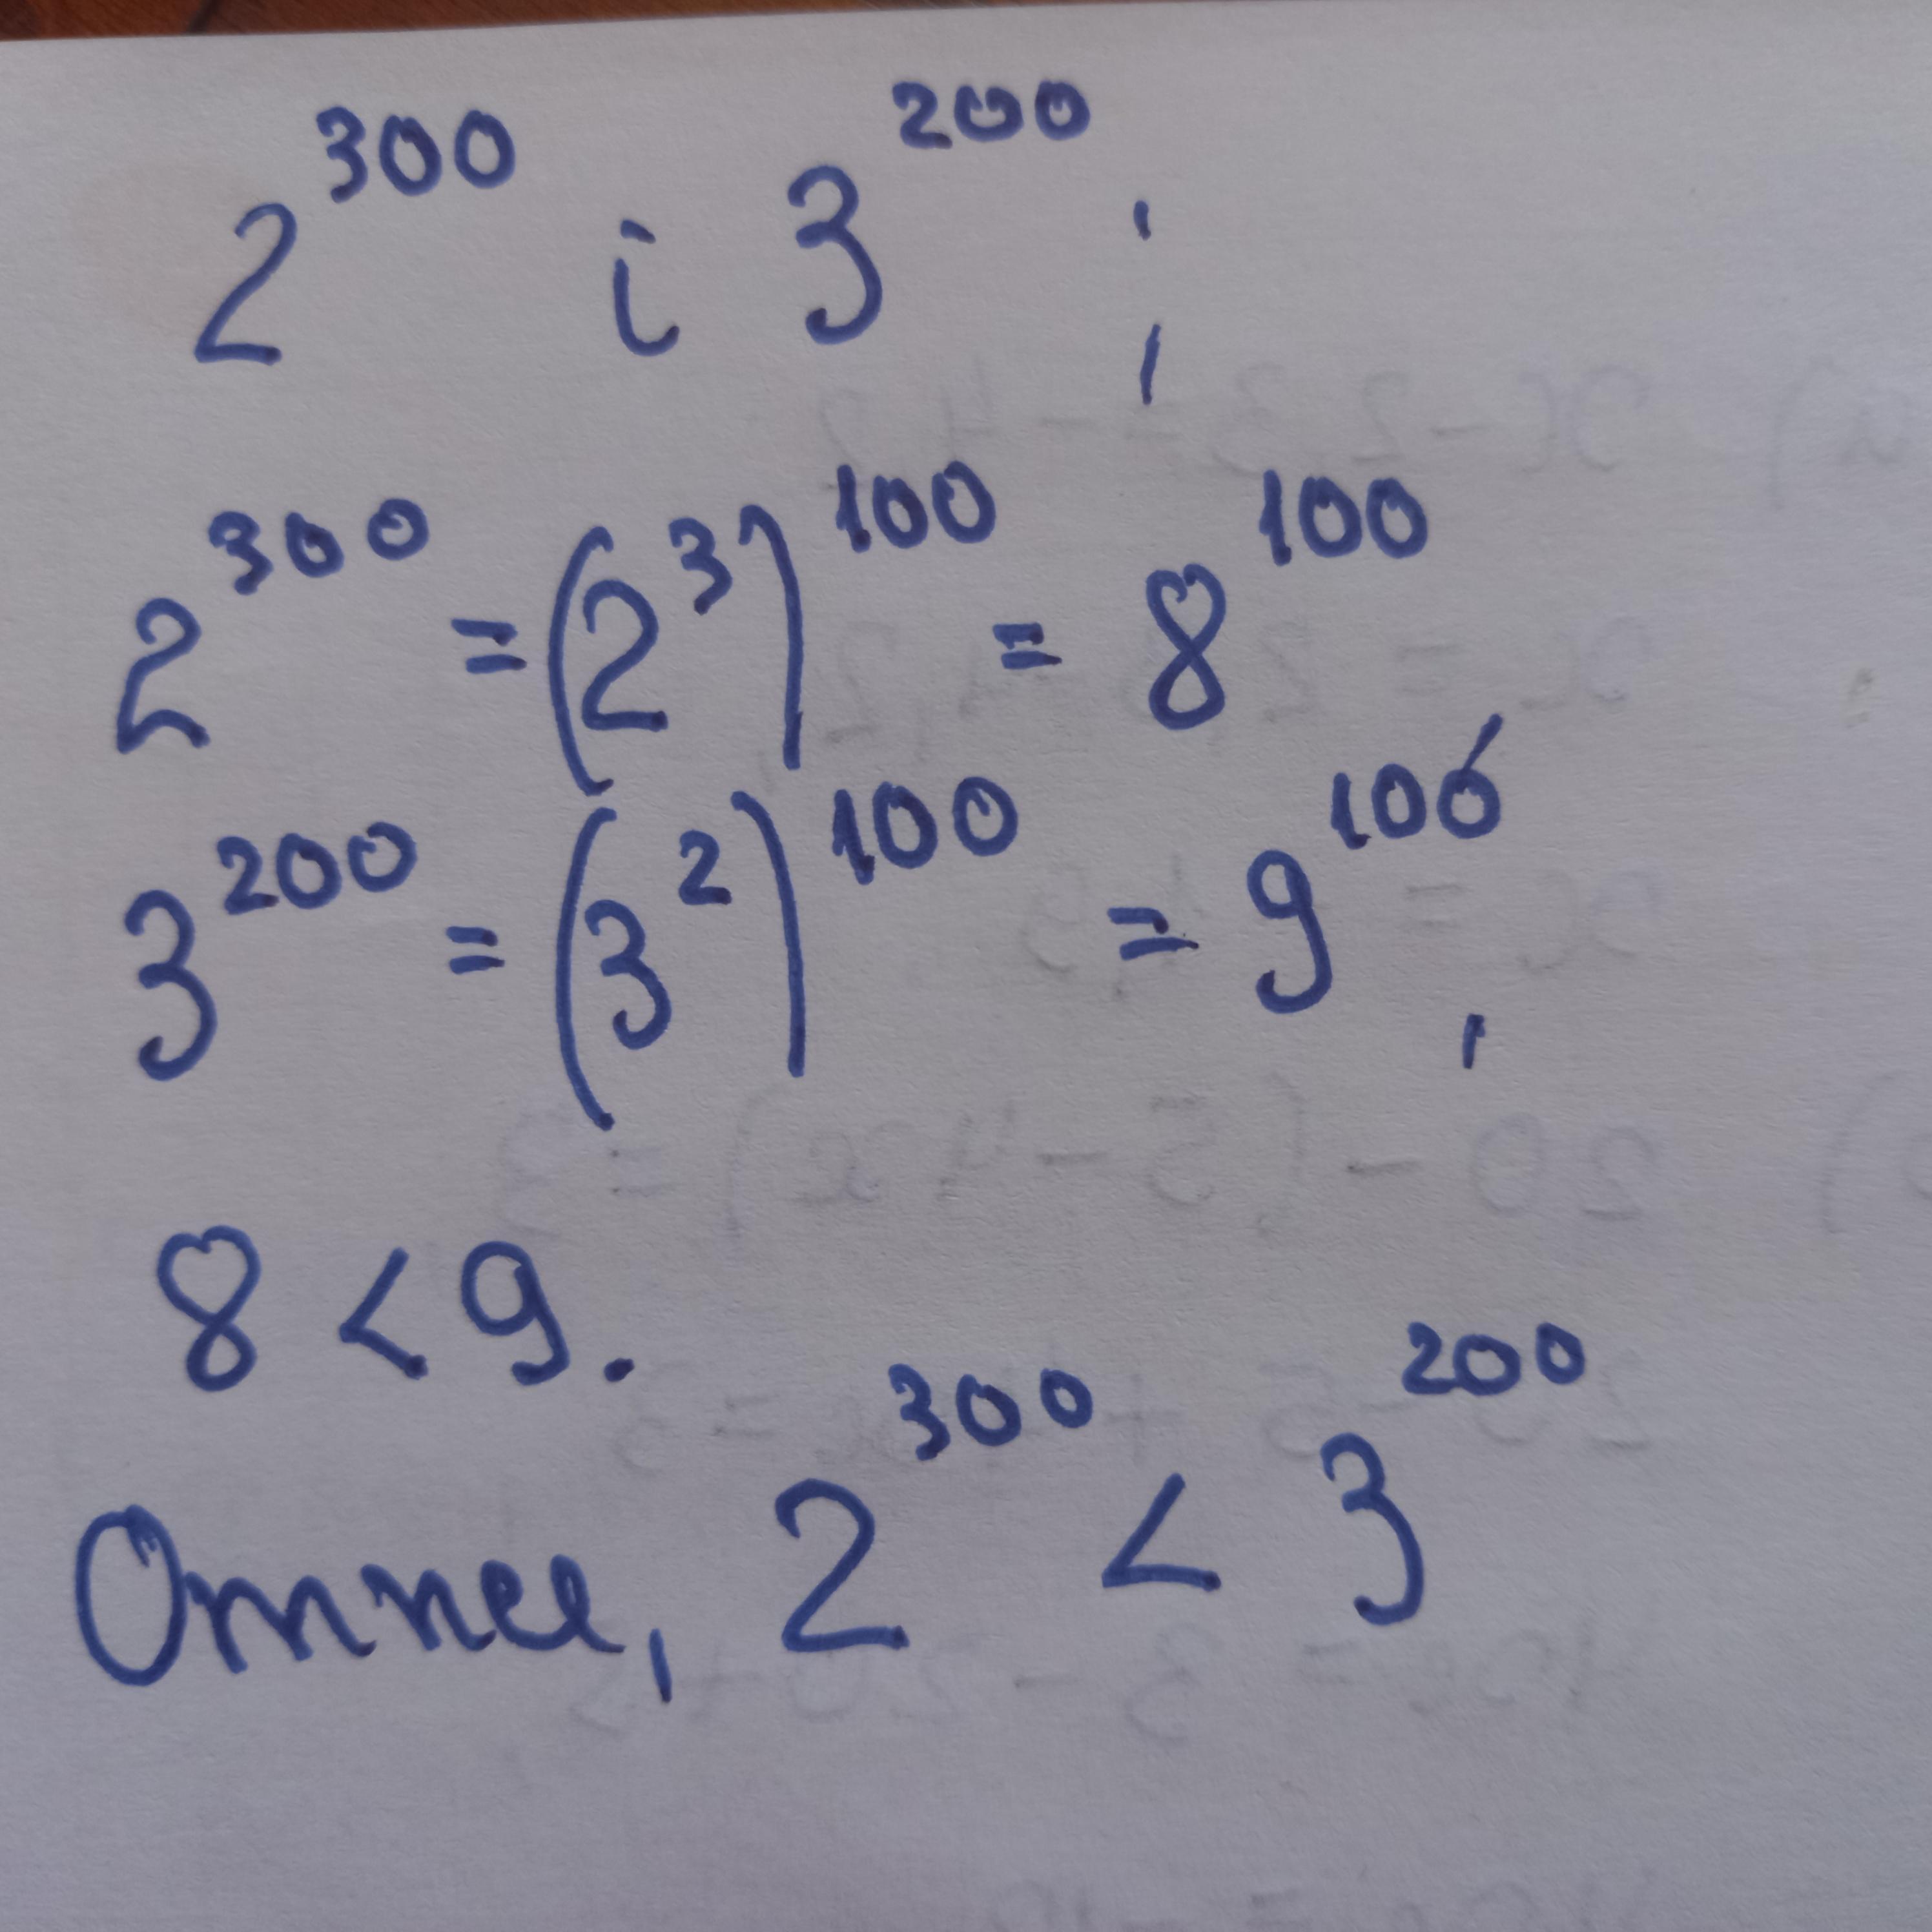 2³⁰⁰ і 3²⁰⁰;
2³⁰⁰ = (2³)¹⁰⁰ = 8¹⁰⁰
3²⁰⁰ = (3²)¹⁰⁰ = 9¹⁰⁰,
8 < 9.
Отже, 2³⁰⁰ < 3²⁰⁰